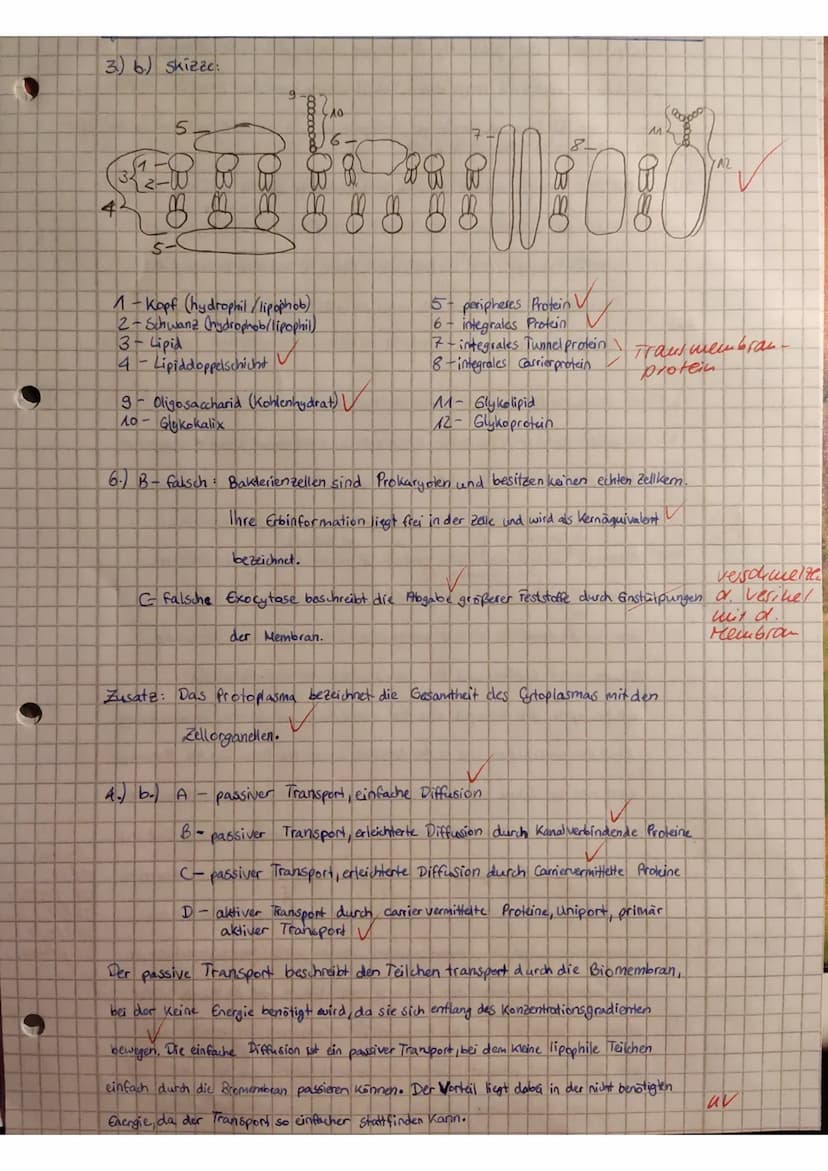 3.) b.) Skizze:
9- 10
5 6- 7- 8- 11
1- 3 2- 12
4
5-
1 - Kopf (hydrophil/lipophob)
2 - Schwanz (hydrophob/lipophil)
3 - Lipid
4 - Lipiddoppelschicht ✓
9 - Oligosaccharid (Kohlenhydrat) ✓
10 - Glykokalix
5 - peripheres Protein ✓
6 - integrales Protein ✓
7 - integrales Tunnelprotein
8 - integrales Carrierprotein
Transmembran-
protein
11 - Glykolipid
12 - Glykoprotein
6.) B - falsch: Bakterienzellen sind Prokaryoten und besitzen keinen echten Zellkern.
Ihre Erbinformation liegt frei in der Zelle und wird als Kernäquivalent ✓
bezeichnet.
C - falsche Exocytose beschreibt die Abgabe größerer Feststoffe durch Einstülpungen
der Membran.
verschmelze
d. Vesikel
mit d.
Membran
Zusatz: Das Protoplasma bezeichnet die Gesamtheit des Cytoplasmas mit den
Zellorganellen. ✓
4.) b.) A - passiver Transport, einfache Diffusion ✓
B - passiver Transport, erleichterte Diffusion durch Kanalverbindende Proteine ✓
C - passiver Transport, erleichterte Diffusion durch Carriervermittelte Proteine ✓
D - aktiver Transport durch carriervermittelte Proteine, Uniport, primär
aktiver Transport ✓
Der passive Transport beschreibt den Teilchentransport durch die Biomembran,
bei der keine Energie benötigt wird, da sie sich entlang des Konzentrationsgradienten
bewegen. Die einfache Diffusion ist ein passiver Transport, bei dem kleine lipophile Teilchen
einfach durch die Biomembran passieren können. Der Vorteil liegt dabei in der nicht benötigten
Energie, da der Transport so einfacher stattfinden kann.